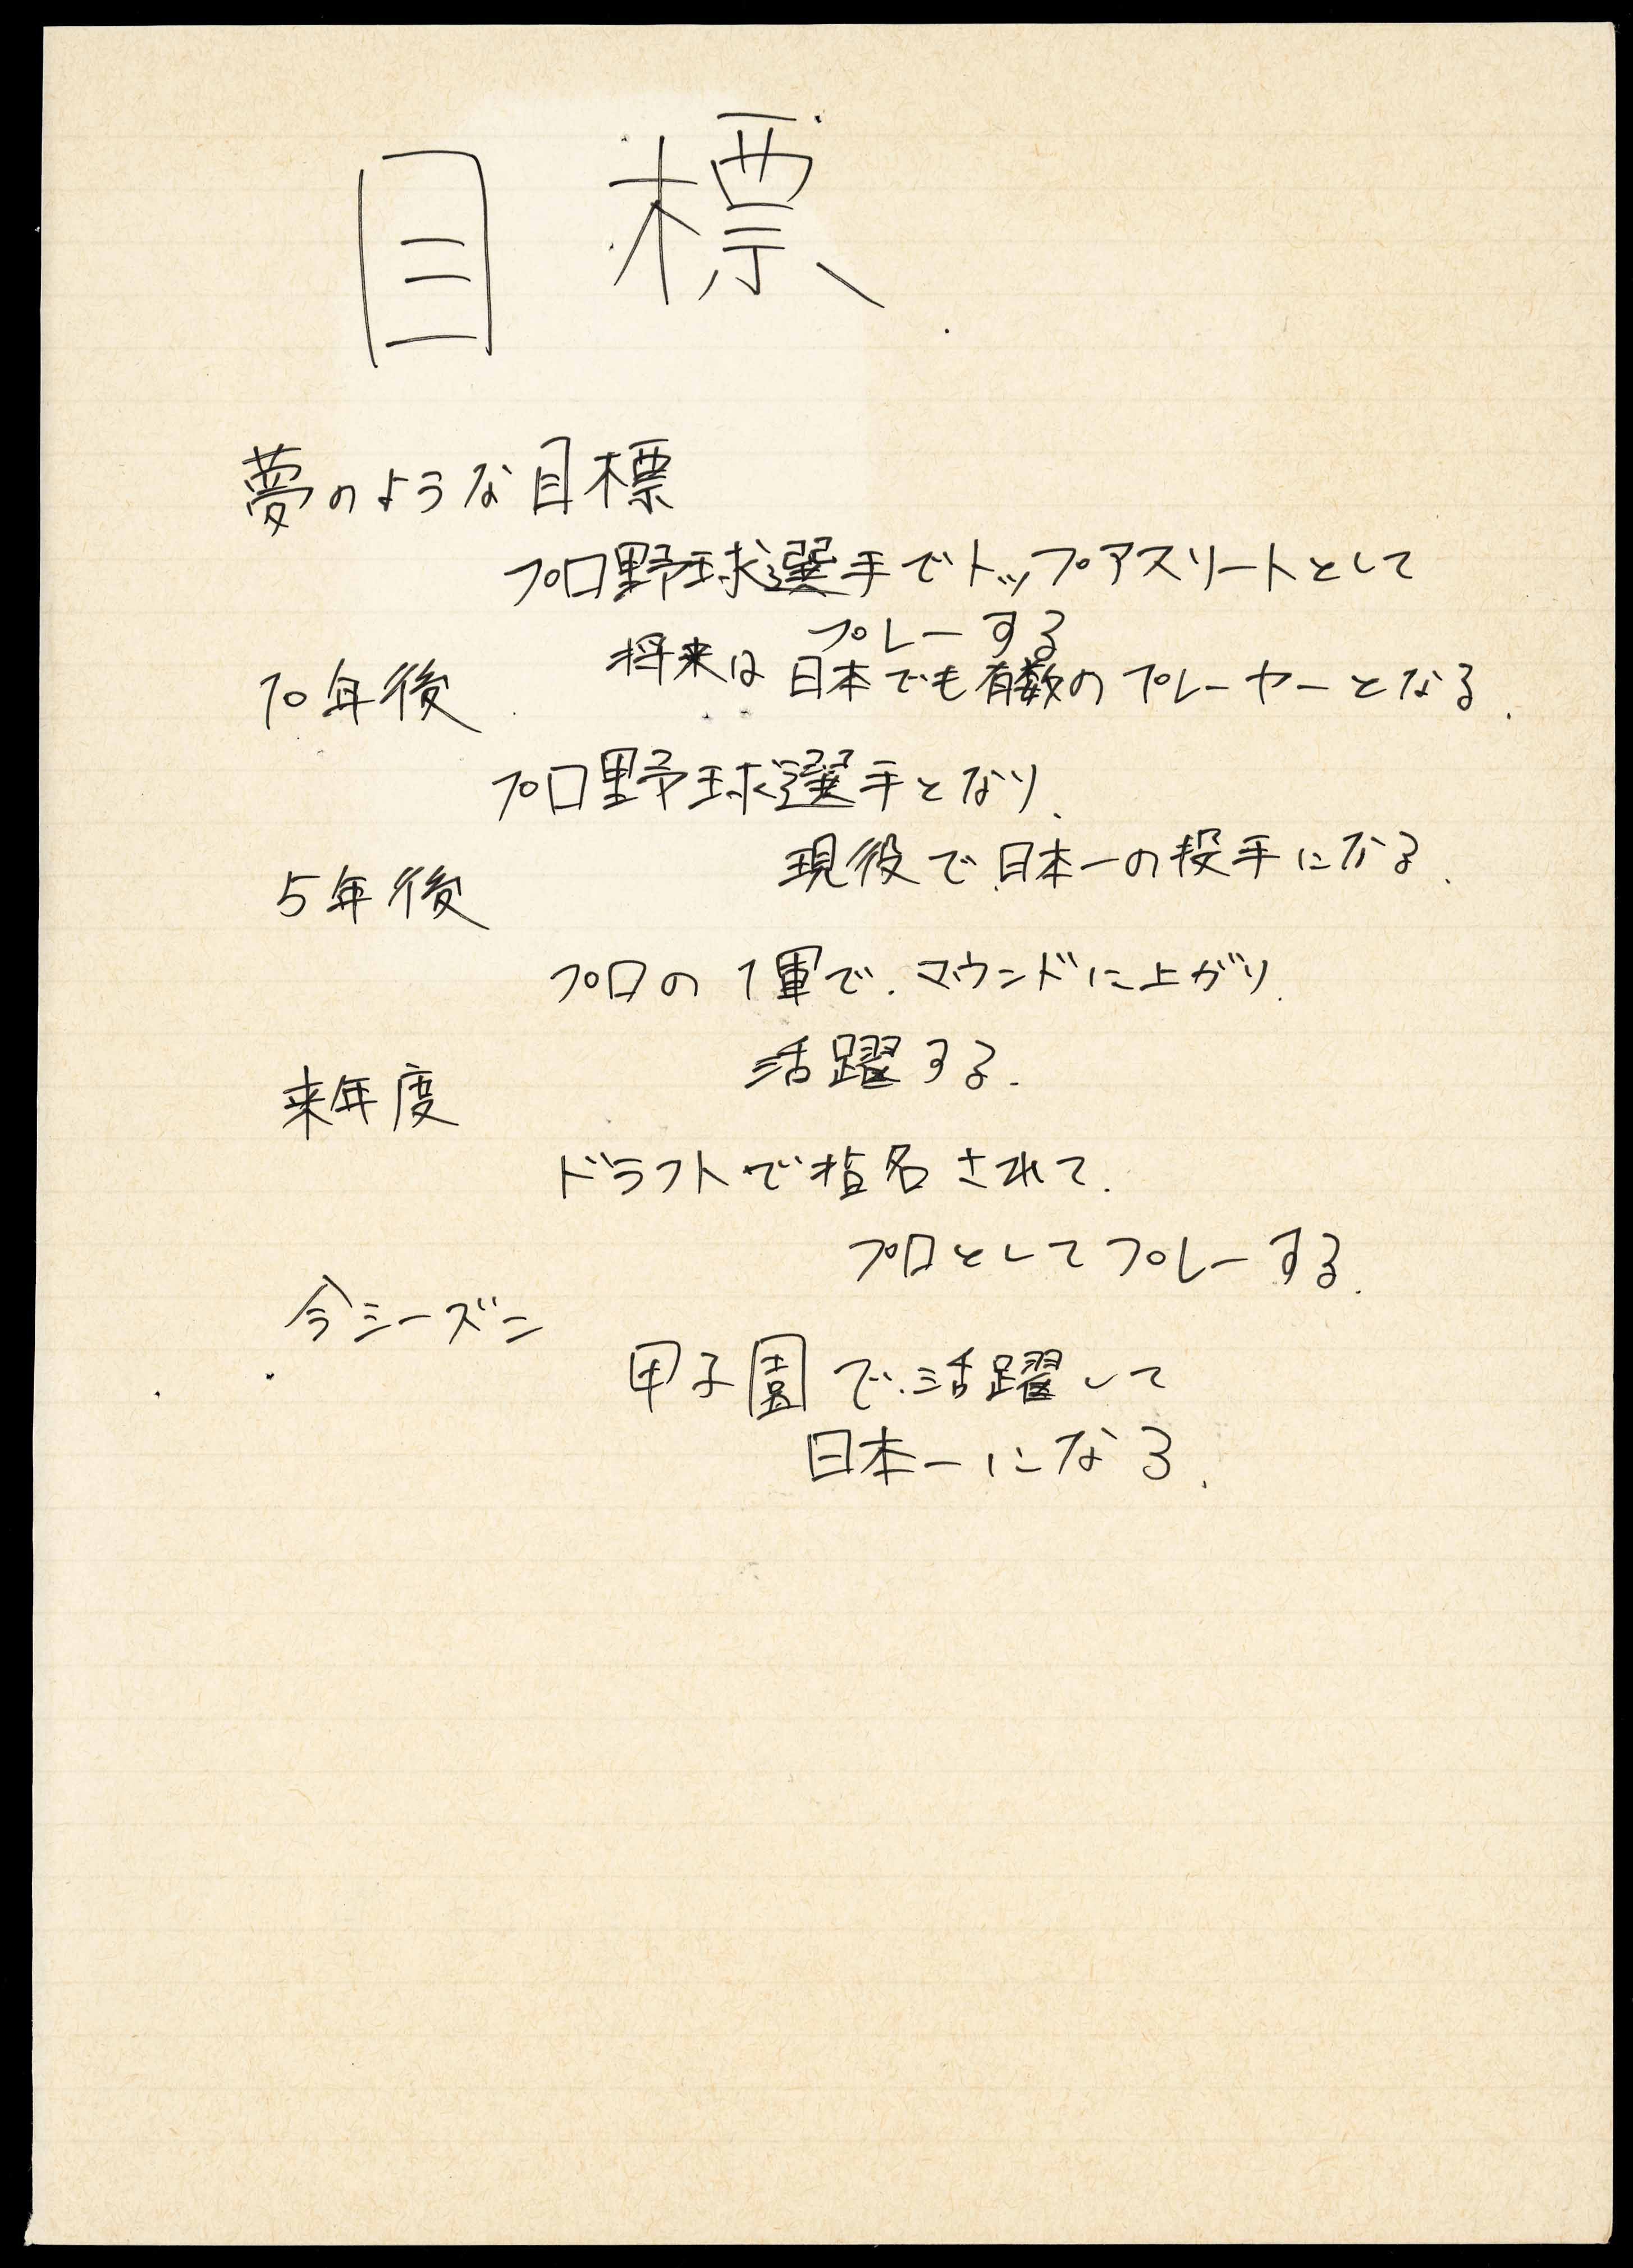 目標
夢のような目標
プロ野球選手でトップアスリートとして
プレーする
将来は日本でも有数のプレーヤーとなる.
10年後
プロ野球選手となり、
現役で日本一の投手になる.
5年後
プロの1軍で.マウンドに上がり.
活躍する.
来年度
ドラフトで指名されて.
プロとしてプレーする.
今シーズン
甲子園で.活躍して
日本一になる.